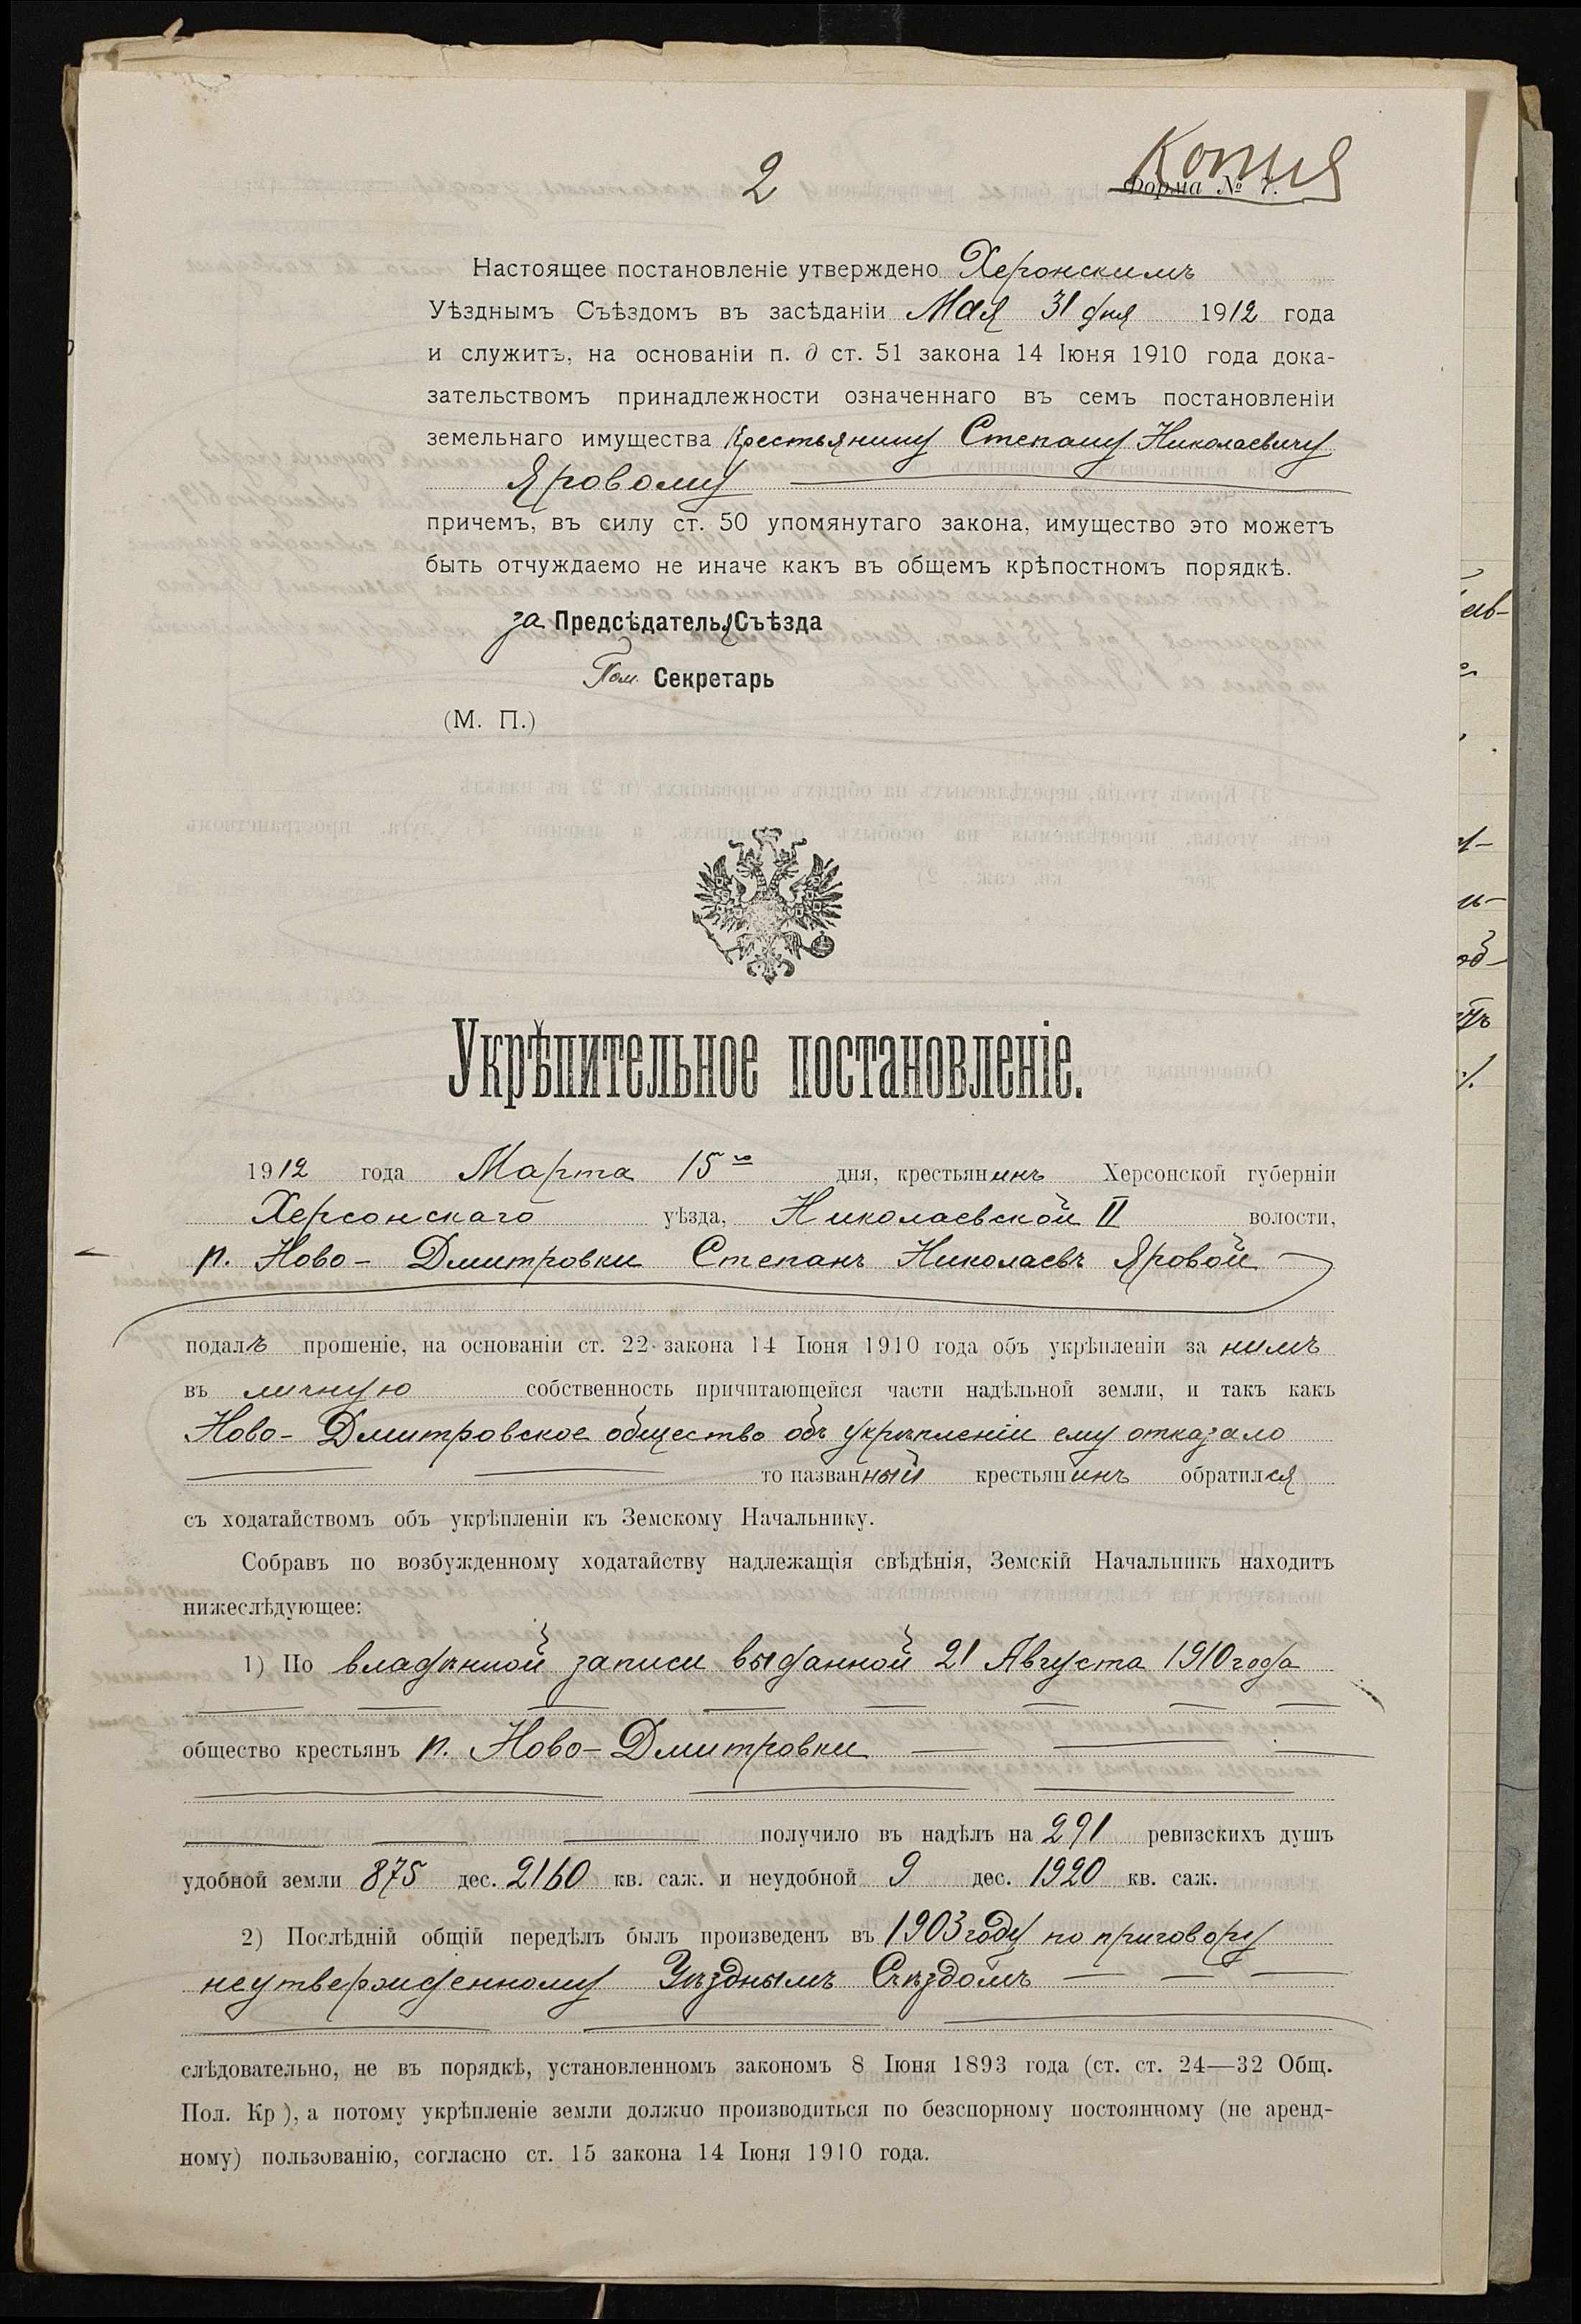 2
Копия
Форма № 7.
Настоящее постановленіе утверждено Херсонскимъ
Уѣзднымъ Съѣздомъ въ засѣданіи Мая 31 дня 1912 года
и служитъ, на основаніи п. д ст. 51 закона 14 Іюня 1910 года дока-
зательствомъ принадлежности означеннаго въ семъ постановленіи
земельнаго имущества крестьянину Степану Николаевичу
Яровому
причемъ, въ силу ст. 50 упомянутаго закона, имущество это можетъ
быть отчуждаемо не иначе какъ въ общемъ крѣпостномъ порядкѣ.
за Предсѣдателья Съѣзда
Пом. Секретарь
(М. П.)
Укрѣпительное постановленіе.
1912 года Марта 15го дня, крестьянинъ Херсонской губерніи
Херсонскаго уѣзда, Николаевской II волости,
п. Ново-Дмитровки Степанъ Николаевъ Яровой
подалъ прошеніе, на основаніи ст. 22 закона 14 Іюня 1910 года объ укрѣпленіи за нимъ
въ личную собственность причитающейся части надѣльной земли, и такъ какъ
Ново-Дмитровское общество объ укрѣпленіи ему отказало
то названный крестьянинъ обратился
съ ходатайствомъ объ укрѣпленіи къ Земскому Начальнику.
Собравъ по возбужденному ходатайству надлежащія свѣдѣнія, Земскій Начальникъ находитъ
нижеслѣдующее:
1) По владѣнной записи выданной 21 Августа 1910 года
общество крестьянъ п. Ново-Дмитровки
получило въ надѣлъ на 291 ревизскихъ душъ
удобной земли 875 дес. 2160 кв. саж. и неудобной 9 дес. 1920 кв. саж.
2) Послѣдній общій передѣлъ былъ произведенъ въ 1903 году по приговору
неутвержденному Уѣзднымъ Съѣздомъ
слѣдовательно, не въ порядкѣ, установленномъ закономъ 8 Іюня 1893 года (ст. ст. 24—32 Общ.
Пол. Кр), а потому укрѣпленіе земли должно производиться по безспорному постоянному (не аренд-
ному) пользованію, согласно ст. 15 закона 14 Іюня 1910 года.